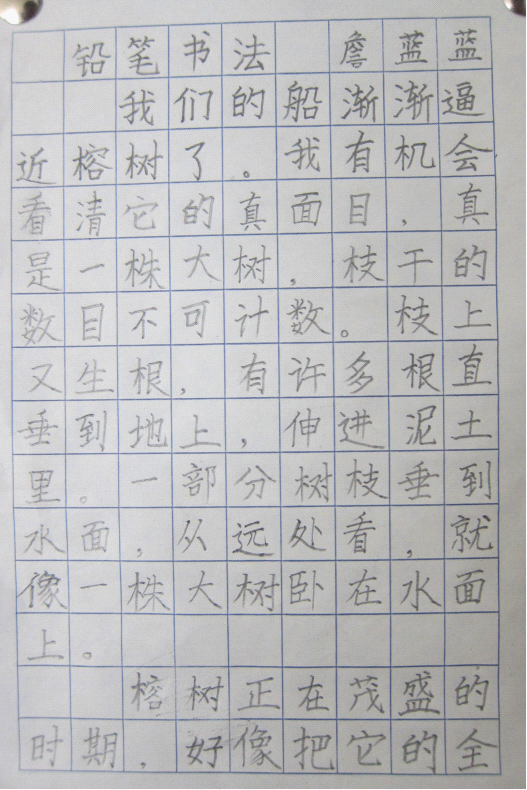 铅笔书法 詹蓝蓝
我们的船渐渐逼
近榕树了。我有机会
看清它的真面目，真
是一株大树，枝干的
数目不可计数。枝上
又生根，有许多根直
垂到地上，伸进泥土
里。一部分树枝垂到
水面，从远处看，就
像一株大树卧在水面
上。
榕树正在茂盛的
时期，好像把它的全